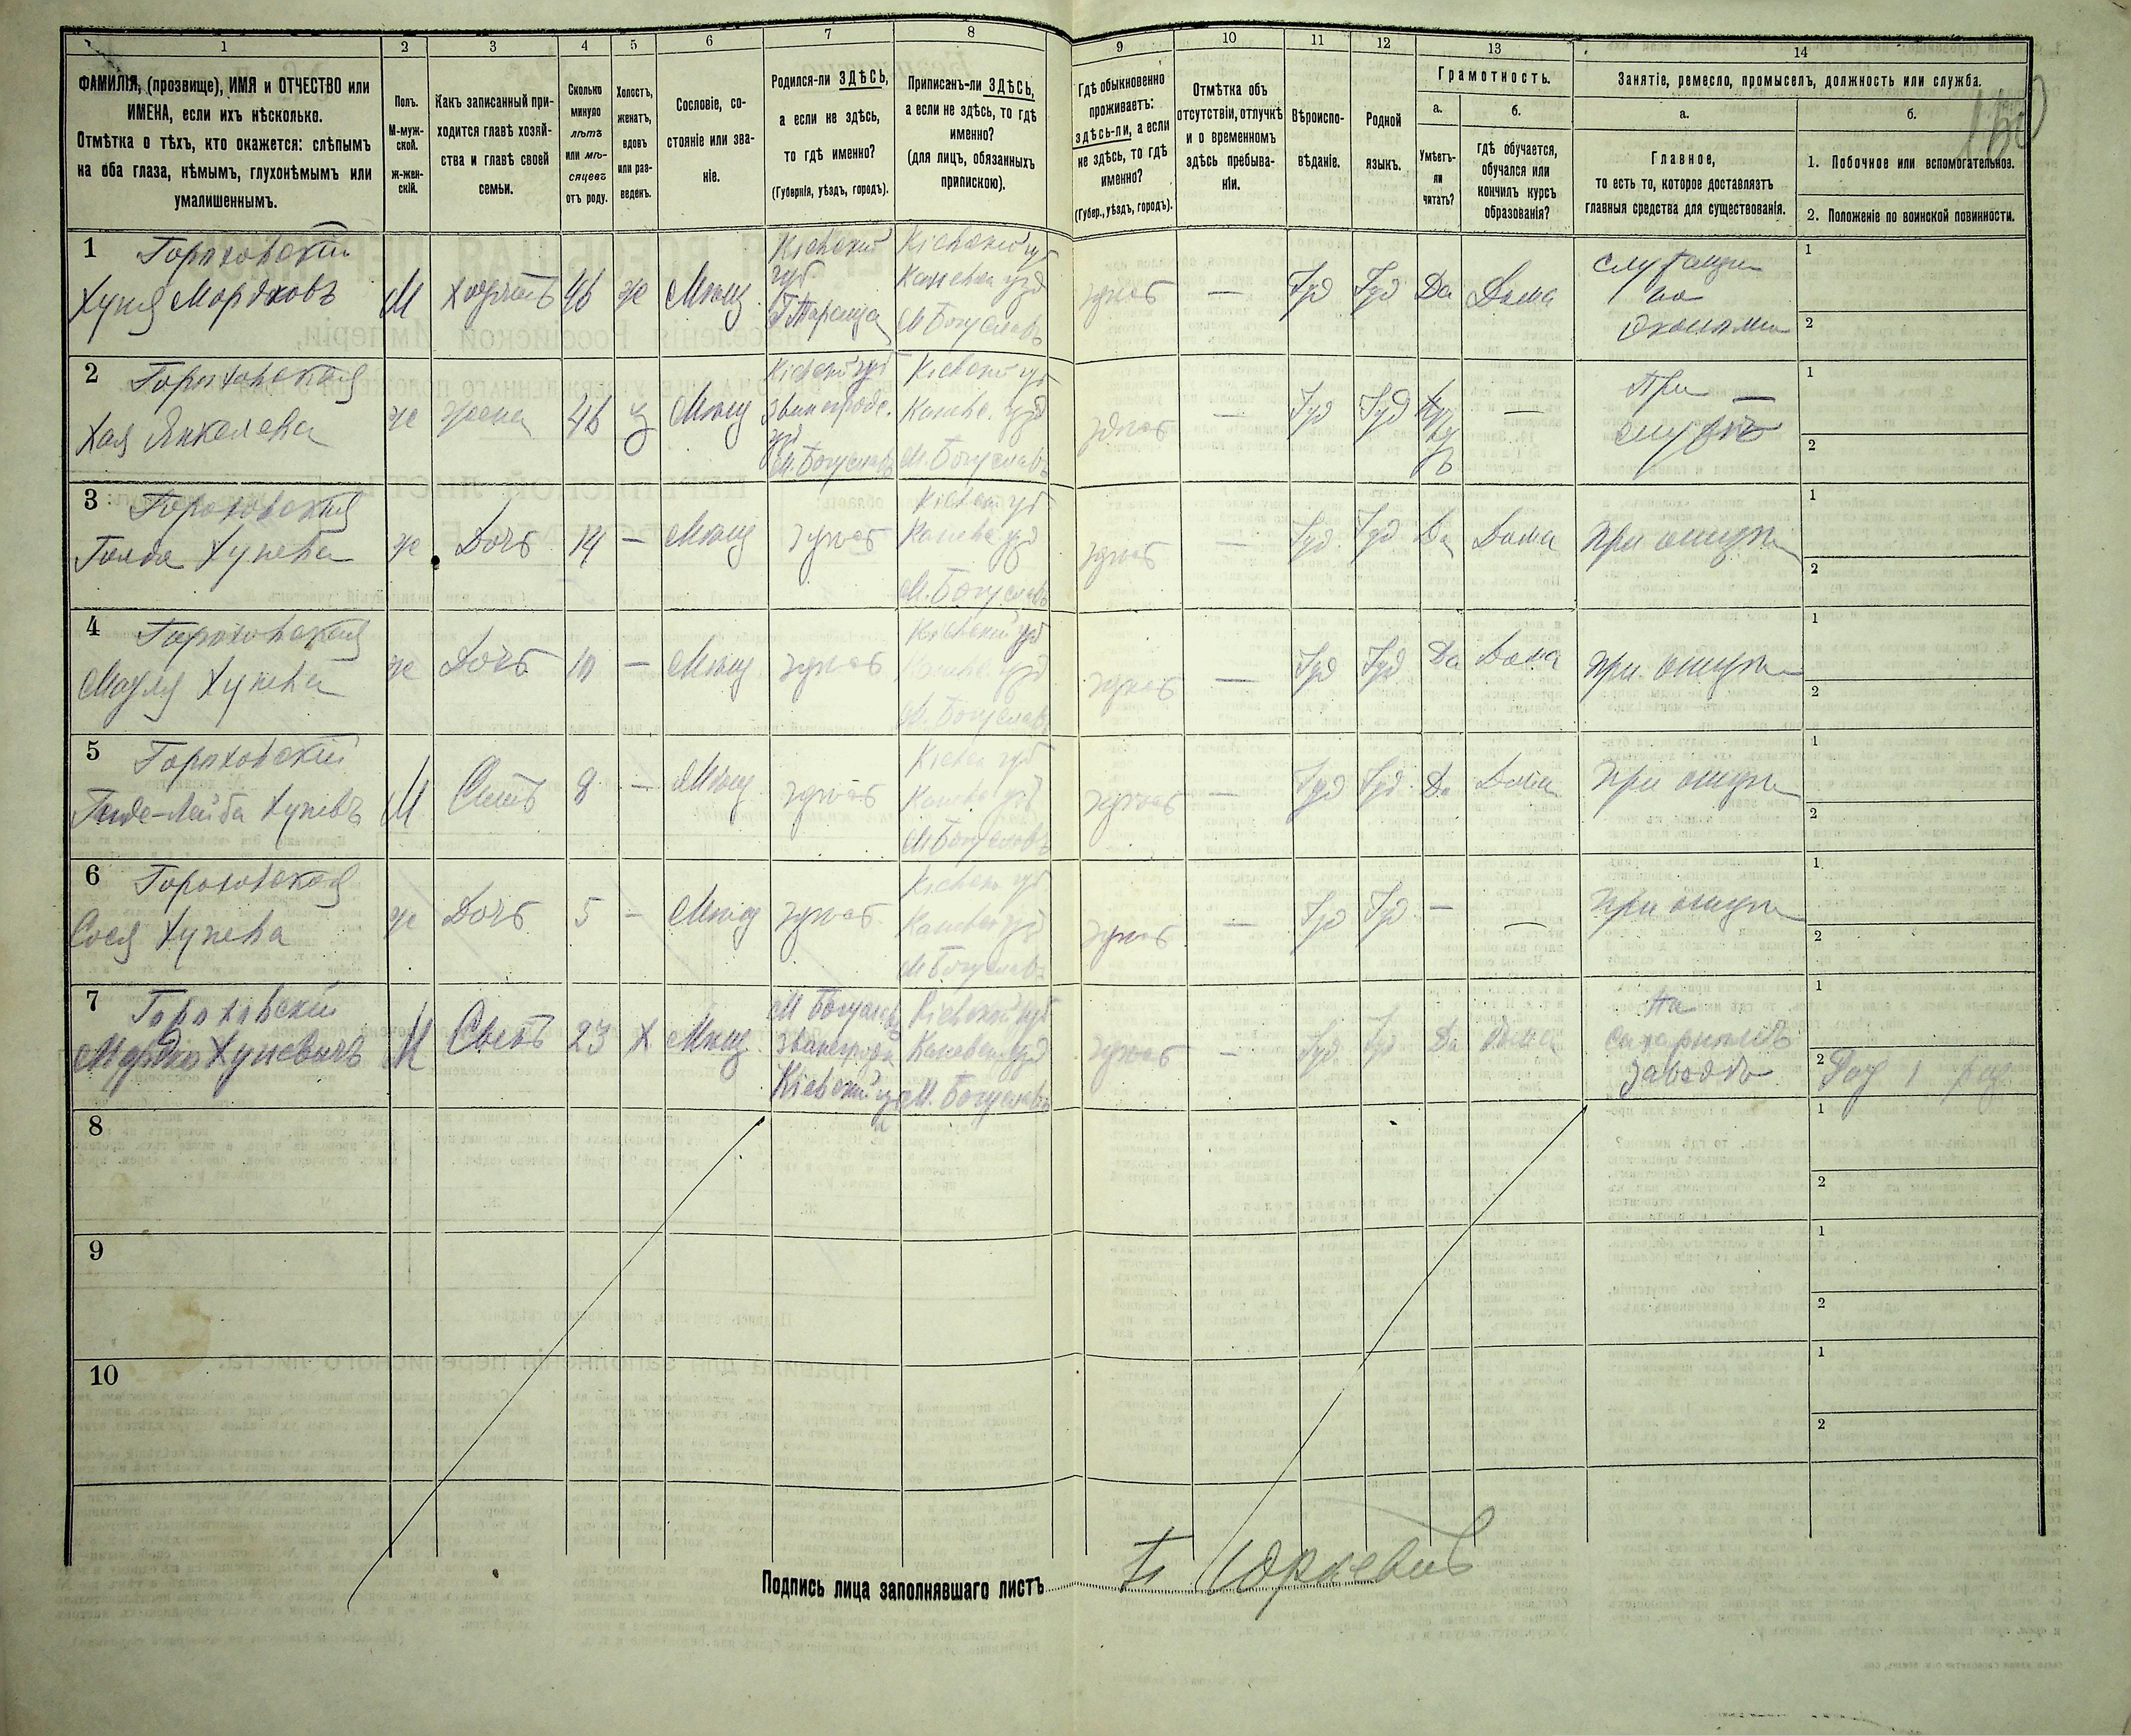 1
2
3
4
5
6
7
8
9
10
11
12
13
14
ФАМИЛІЯ, (прозвище), ИМЯ и ОТЧЕСТВО или
ИМЕНА, если ихъ нѣсколько.
Отмѣтка о тѣхъ, кто окажется: слѣпымъ
на оба глаза, нѣмымъ, глухонѣмымъ или
умалишеннымъ.
Полъ.
М-муж-
ской.
ж-жен-
скій.
Какъ записанный при-
ходится главѣ хозяй-
ства и главѣ своей
семьи.
Сколько
минуло
лѣтъ
или мѣ-
сяцевъ
отъ роду.
Холостъ,
женатъ,
вдовъ
или раз-
веденъ.
Сословіе, со-
стояніе или зва-
ніе.
Родился-ли ЗДѢСЬ,
а если не здѣсь,
то гдѣ именно?
(Губернія, уѣздъ, городъ).
Приписанъ-ли ЗДѢСЬ,
а если не здѣсь, то гдѣ
именно?
(для лицъ, обязанныхъ
припискою).
Гдѣ обыкновенно
проживаетъ:
здѣсь-ли, а если
не здѣсь, то гдѣ
именно?
(Губер., уѣздъ, городъ).
Отмѣтка объ
отсутствіи, отлучкѣ
и о временномъ
здѣсь пребыва-
ніи.
Вѣроиспо-
вѣданіе.
Родной
языкъ.
Грамотность.
а.
Умѣетъ-
ли
читать?
б.
гдѣ обучается,
обучался или
кончилъ курсъ
образованія?
Занятіе, ремесло, промыселъ, должность или служба.
а.
Главное,
то есть то, которое доставляетъ
главныя средства для существованія.
б.
1. Побочное или вспомогательное.
2. Положеніе по воинской повинности.
1 Гороховскій
Хуня Мордковъ
М
Хозяинъ
46
ж
Мѣщ
Кіевской
губ
Г Тараща
Кіевской губ
Каневск уѣзд
М Богуславъ
здѣсь
—
Іуд
Іуд
Да
Дома
1
2
2 Гороховская
Хая Янкелева
ж
жена
46
з
Мѣщ
Кіевской губ
Звенигородс.
М. Богуславъ
Кіевской губ
Канев. уѣзд
М. Богуславъ
здѣсь
—
Іуд
Іуд
—
При
1
2
3 Гороховская
Голда Хунева
ж
Дочь
14
—
Мѣщ
здѣсь
Кіевск губ
Канев уѣзд
М. Богуславъ
здѣсь
—
Іуд
Іуд
Да
Дома
при отцѣ
1
2
4 Гороховская
Хунева
ж
Дочь
—
Мѣщ
здѣсь
Кіевской губ
Канев. уѣзд
М. Богуславъ
здѣсь
—
Іуд
Іуд
Да
Дома
при отцѣ
1
2
5 Гороховскій
Хуневъ
М
Сынъ
8
—
Мѣщ
здѣсь
Кіевск губ
Канев уѣз
М Богуславъ
здѣсь
—
Іуд
Іуд
Да
Дома
при отцѣ
1
2
6 Гороховская
Сося Хунева
ж
Дочь
5
—
Мѣщ
здѣсь
Кіевск губ
Канев уѣзд
М Богуславъ
здѣсь
—
Іуд
Іуд
—
—
при отцѣ
1
2
7 Гороховскій
Мордко Хуневичъ
М
Сынъ
23
Х
Мѣщ
М Богуславъ
Звенигородск
Кіевской
Кіевской губ
Каневск уѣзд
М. Богуславъ
здѣсь
—
Іуд
Іуд
Да
Дома
На
сахарномъ
заводѣ
1
2
8
1
2
9
1
2
10
1
2
Подпись лица заполнявшаго листъ
Юркевичъ